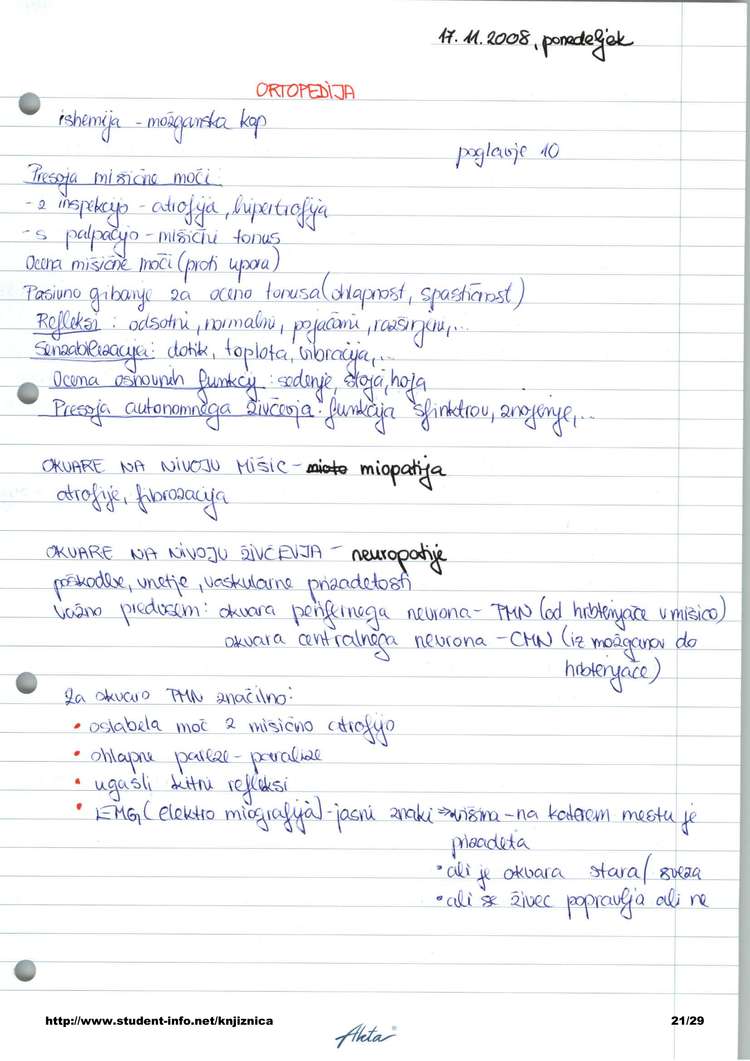 17. 11. 2008, ponedeljek
ORTOPEDIJA
ishemija - možganska kap
poglavje 10
Presoja mišične moči:
- z inspekcijo - atrofija, hipertrofija
- s palpacijo - mišični tonus
Ocena mišične moči (proti uporu)
Pasivno gibanje za oceno tonusa (ohlapnost, spastičnost)
Refleksi: odsotni, normalni, pojačani, razširjeni,...
Senzabilizacija: dotik, toplota, vibracija,...
Ocena osnovnih funkcij: sedenje, stoja, hoja
Presoja autonomnega živčevja: funkcija sfinktrov, znojenje,...
OKVARE NA NIVOJU MIŠIC - mioto miopatija
atrofije, fibrozacija
OKVARE NA NIVOJU ŽIVČEVJA - neuropatije
poškodbe, vnetje, vaskularne prizadetosti
važno predvsem: okvara perifernega nevrona - PMN (od hrbtenjače v mišico)
okvara centralnega nevrona - CMN (iz možganov do
hrbtenjače)
Za okvaro PMN značilno:
• oslabela moč z mišično atrofijo
• ohlapne pareze - paralize
• ugasli kitni refleksi
• EMG (elektro miografija) - jasni znaki ⇒ višina - na katerem mestu je
prizadeta
• ali je okvara stara / sveža
• ali se živec popravlja ali ne
http://www.student-info.net/knjiznica
21/29
Aleta